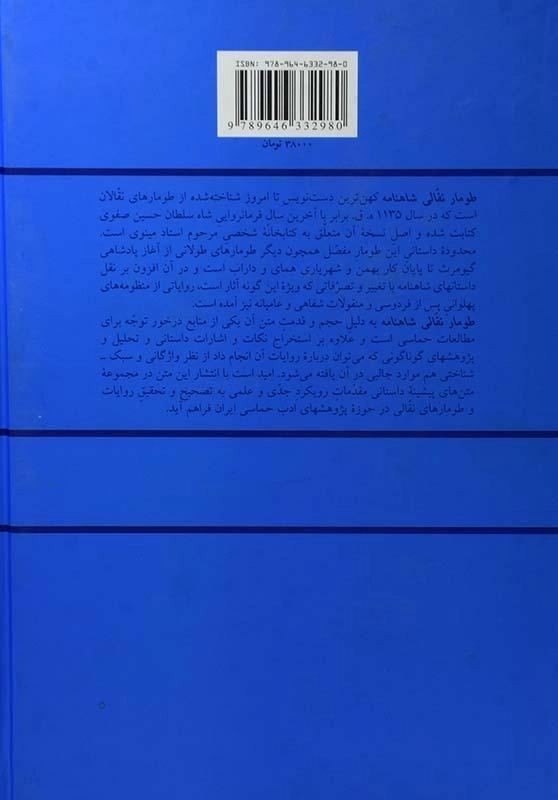 ISBN: 978-964-6332-98-0
9 789646 332980
۳۸۰۰۰ تومان
طومار نقّالی شاهنامه کهن‌ترین دست‌نویس تا امروز شناخته‌شده از طومارهای نقّالان
است که در سال ۱۱۳۵ ه‍. ق. برابر با آخرین سال فرمانروایی شاه سلطان حسین صفوی
کتابت شده و اصل نسخهٔ آن متعلّق به کتابخانهٔ شخصی مرحوم استاد مینوی است.
محدودهٔ داستانی این طومار مفصّل همچون دیگر طومارهای طولانی از آغاز پادشاهی
گیومرث تا پایان کار بهمن و شهریاری همای و داراب است و در آن افزون بر نقل
داستانهای شاهنامه با تغییر و تصرّفاتی که ویژهٔ این گونه آثار است، روایاتی از منظومه‌های
پهلوانی پس از فردوسی و منقولات شفاهی و عامیانه نیز آمده است.
طومار نقّالی شاهنامه به دلیل حجم و قدمتِ متن آن یکی از منابع درخور توجّه برای
مطالعات حماسی است و علاوه بر استخراج نکات و اشارات داستانی و تحلیل و
پژوهشهای گوناگونی که می‌توان دربارهٔ روایات آن انجام داد از نظر واژگانی و سبک ـ
شناختی هم موارد جالبی در آن یافته می‌شود. امید است با انتشار این متن در مجموعهٔ
متن‌های پیشینهٔ داستانی مقدّمات رویکرد جدّی و علمی به تصحیح و تحقیقِ روایات
و طومارهای نقّالی در حوزهٔ پژوهشهای ادب حماسی ایران فراهم آید.